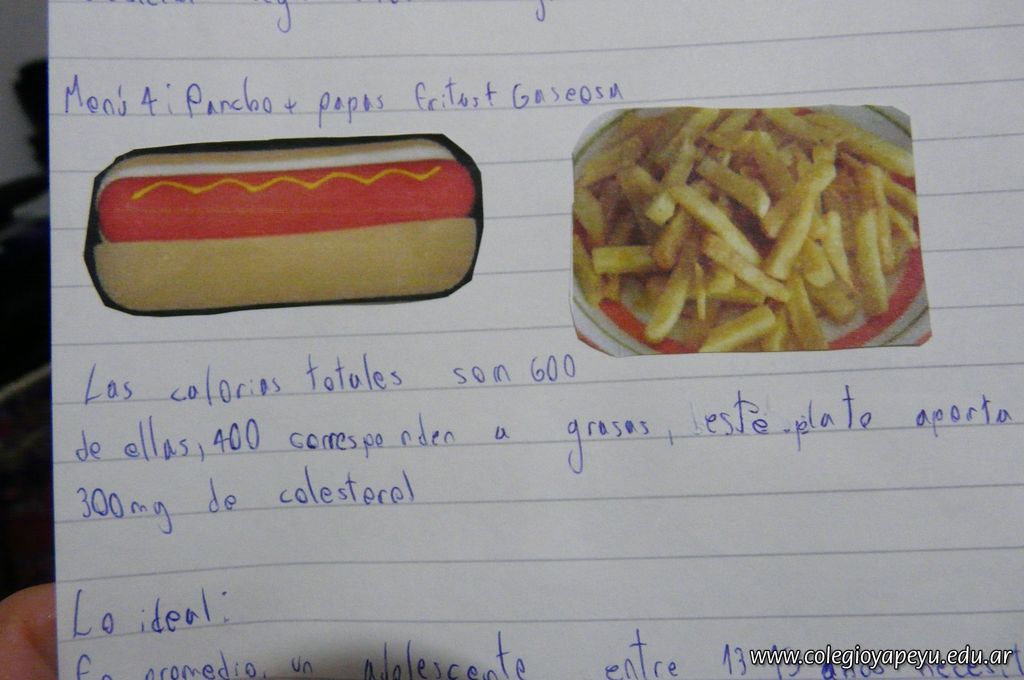 Menú 4: Pancho + papas fritas + Gaseosa
Las calorias totales son 600
de ellas, 400 corresponden a grasas, este plato aporta
300mg de colesterol
Lo ideal:
En promedio un adolescente entre 13
www.colegioyapeyu.edu.ar